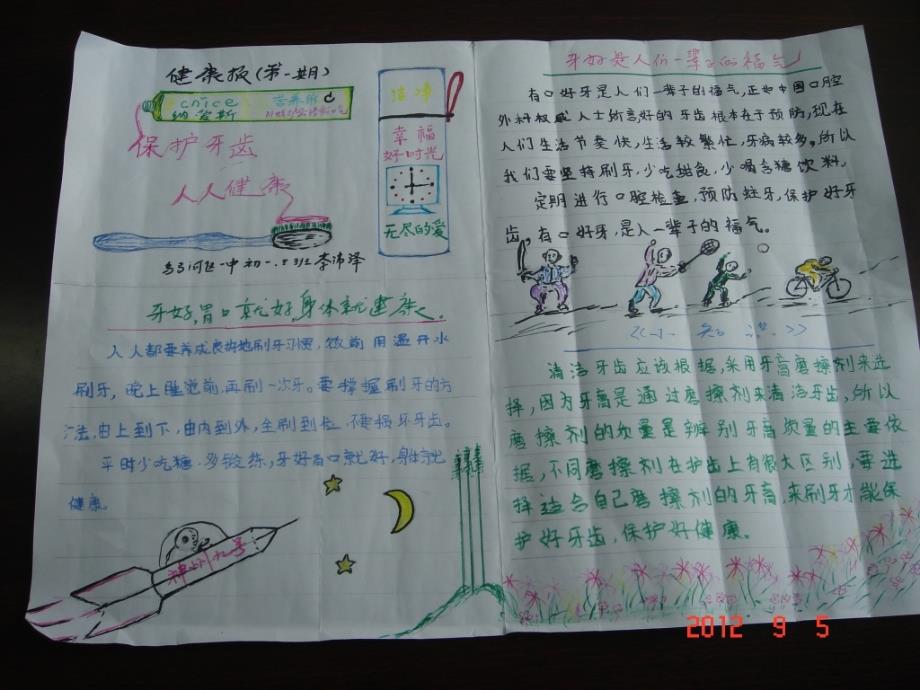 健康报(第一期)
cnice
纳爱斯 营养牙
保护牙齿
人人健康
洁净
幸福
好时光
无尽的爱
一中初一.
牙好,胃口就好,身体就健康.
人人都要养成良好地刷牙习惯,饭前用温开水
刷牙,晚上睡觉前,再刷一次牙。要掌握刷牙的方
法,由上到下,由内到外,全刷到位
平时少吃糖,多锻练,牙好胃口就好,身体就
健康。
神州九号
牙好是人们一辈子的福气!
有口好牙是人们一辈子的福气,正如中国口腔
外科权威人士所言好的牙齿根本在于预防,现在
人们生活节奏快,生活较繁忙,牙病较多。所以
我们要坚持刷牙,少吃甜食,少喝含糖饮料。
定期进行口腔检查,预防蛀牙,保护好牙
齿。有口好牙,是人一辈子的福气。
清洁牙齿应该根据,采用牙膏磨擦剂来选
择,因为牙膏是通过磨擦剂来清洁牙齿,所以
磨擦剂的质量是辨别牙膏质量的主要依
据,不同磨擦剂在护齿上有很大区别,要选
择适合自己磨擦剂的牙膏,来刷牙才能保
护好牙齿,保护好健康。
2012 9 5